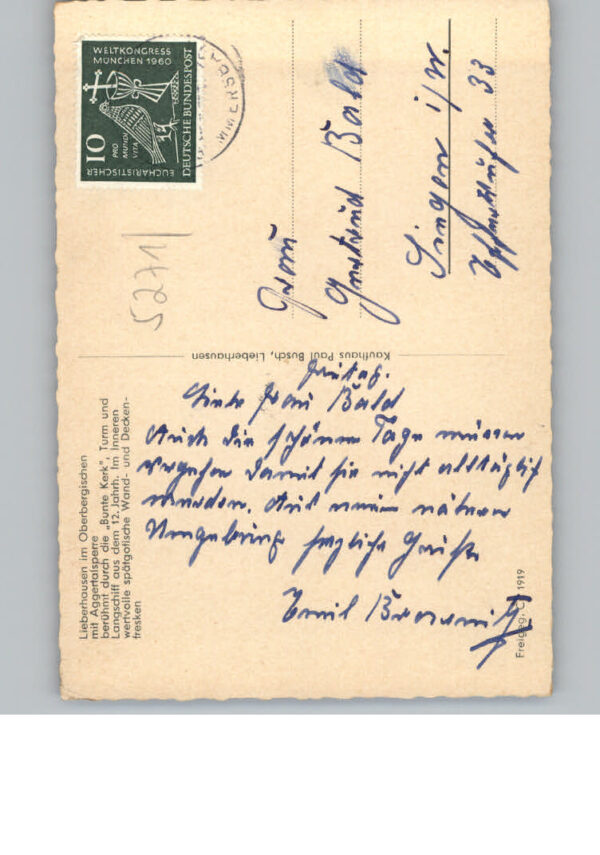 WELTKONGRESS
MÜNCHEN 1960
PRO
MUNDI
VITA
EUCHARISTISCHER
10
DEUTSCHE BUNDESPOST
MMERSB
5271
Frau
Gertrud Bald
Singen i/W.
33
Kaufhaus Paul Busch, Lieberhausen
Freitag.
Liebe Frau Bald
Auch die schönen Tage müssen
vergehen damit sie nicht alltäglich
werden. Aus meiner näheren
Umgebung herzliche Grüße
Emil
Lieberhausen im Oberbergischen
mit Aggertalsperre
berühmt durch die „Bunte Kerk", Turm und
Langschiff aus dem 12. Jahrh. Im Inneren
wertvolle spätgotische Wand- und Decken-
fresken
Freigeg. 1919